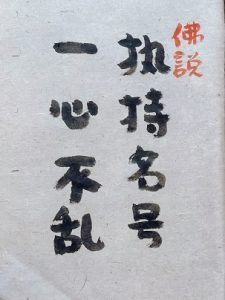 佛説
执持名号
一心不乱